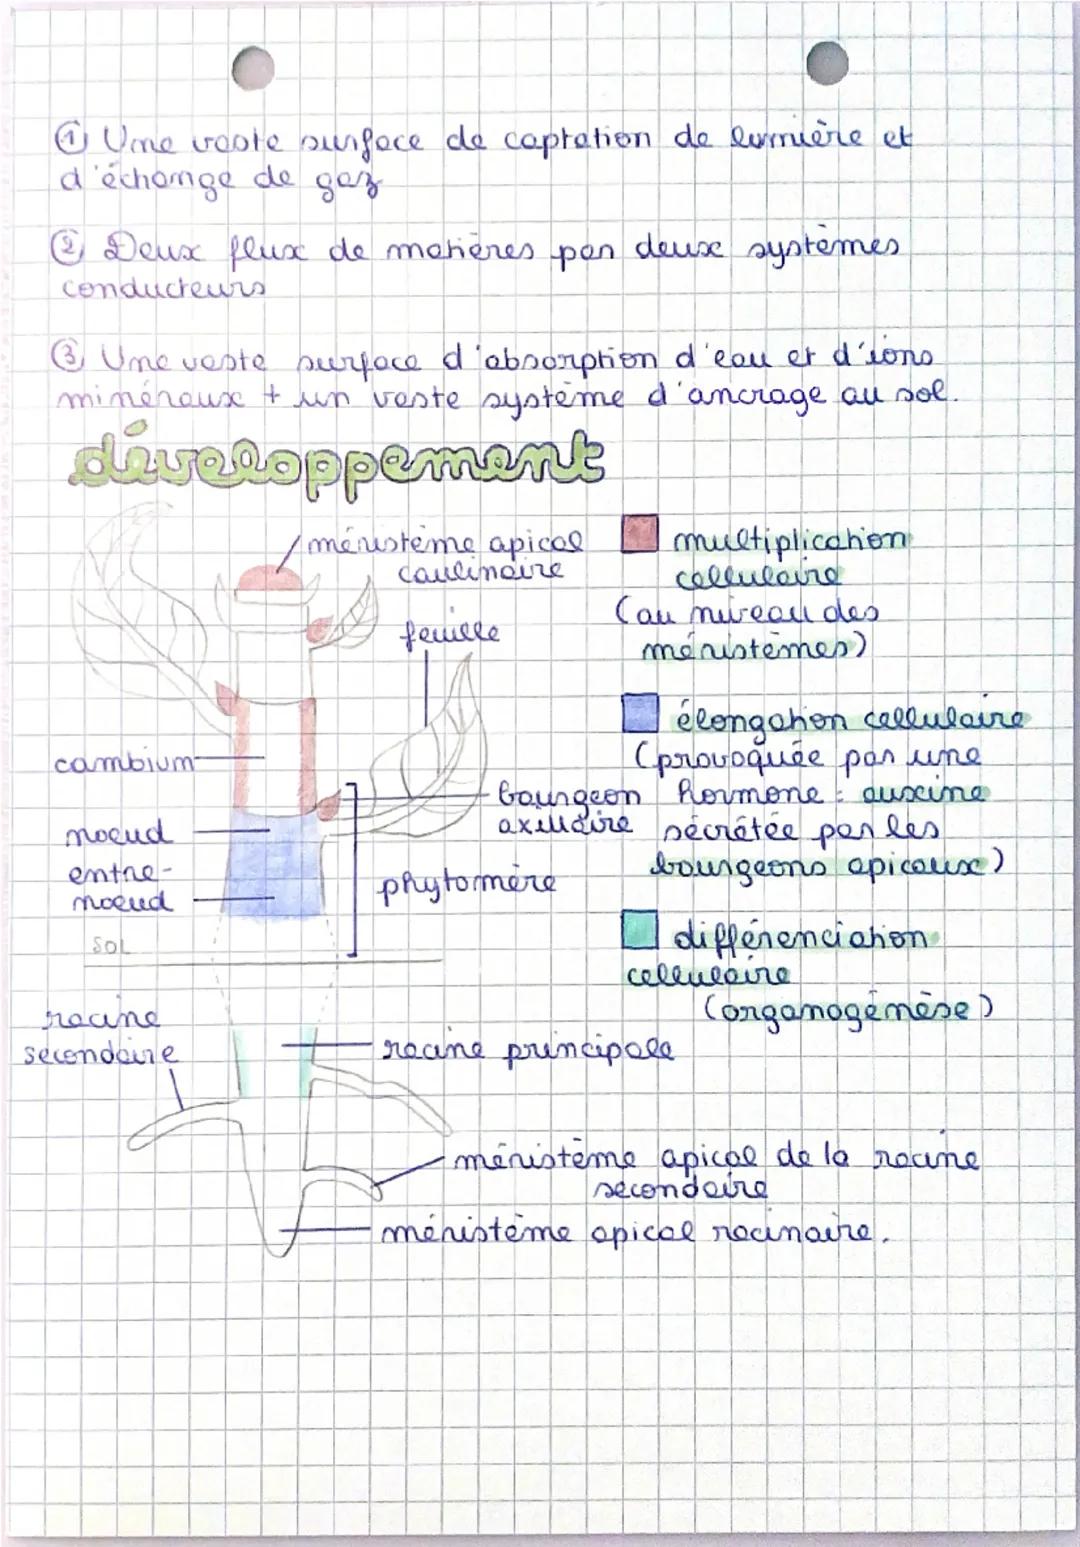 ① Une vaste surface de captation de lumière et
d'échange de gaz
② Deux flux de matières par deux systèmes
conducteurs
③ Une vaste surface d'absorption d'eau et d'ions
minéraux + un vaste système d'ancrage au sol.
développement
méristème apical
caulinaire
feuille
cambium
noeud
entre-
noeud
SOL
bourgeon
axillaire
phytomère
multiplication
cellulaire
(au niveau des
méristèmes)
élongation cellulaire
(provoquée par une
hormone : auxine
sécrétée par les
bourgeons apicaux)
différenciation
cellulaire
(organogénèse)
racine
secondaire
racine principale
méristème apical de la racine
secondaire
méristème apical racinaire.